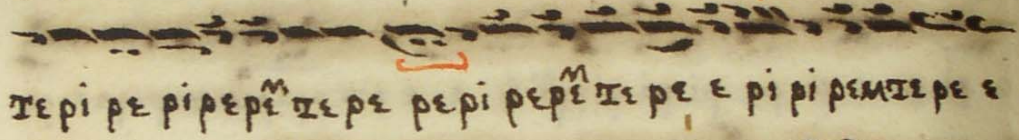 τε ρι ρε ρι ρε ρεμ τε ρε ρε ρι ρε ρεμ τε ρε ε ρι ρι ρεμ τε ρε ε